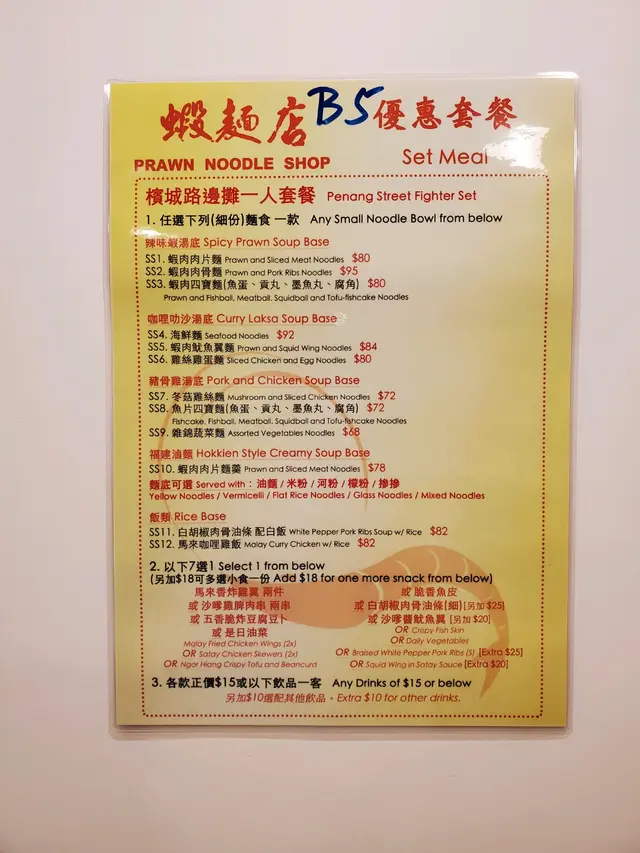 蝦麵店 B5 優惠套餐
PRAWN NOODLE SHOP Set Meal
檳城路邊攤一人套餐 Penang Street Fighter Set
1. 任選下列(細份)麵食 一款 Any Small Noodle Bowl from below
辣味蝦湯底 Spicy Prawn Soup Base
SS1. 蝦肉肉片麵 Prawn and Sliced Meat Noodles $80
SS2. 蝦肉肉骨麵 Prawn and Pork Ribs Noodles $95
SS3. 蝦肉四寶麵(魚蛋、貢丸、墨魚丸、腐角) $80
Prawn and Fishball, Meatball, Squidball and Tofu-fishcake Noodles
咖哩叻沙湯底 Curry Laksa Soup Base
SS4. 海鮮麵 Seafood Noodles $92
SS5. 蝦肉魷魚翼麵 Prawn and Squid Wing Noodles $84
SS6. 雞絲雞蛋麵 Sliced Chicken and Egg Noodles $80
豬骨雞湯底 Pork and Chicken Soup Base
SS7. 冬菇雞絲麵 Mushroom and Sliced Chicken Noodles $72
SS8. 魚片四寶麵(魚蛋、貢丸、墨魚丸、腐角) $72
Fishcake, Fishball, Meatball, Squidball and Tofu-fishcake Noodles
SS9. 雜錦蔬菜麵 Assorted Vegetables Noodles $68
福建滷麵 Hokkien Style Creamy Soup Base
SS10. 蝦肉肉片麵羹 Prawn and Sliced Meat Noodles $78
麵底可選 Served with : 油麵 / 米粉 / 河粉 / 檬粉 / 摻摻
Yellow Noodles / Vermicelli / Flat Rice Noodles / Glass Noodles / Mixed Noodles
飯類 Rice Base
SS11. 白胡椒肉骨油條 配白飯 White Pepper Pork Ribs Soup w/ Rice $82
SS12. 馬來咖哩雞飯 Malay Curry Chicken w/ Rice $82
2. 以下7選1 Select 1 from below
(另加$18可多選小食一份 Add $18 for one more snack from below)
馬來香炸雞翼 兩件
或 沙嗲雞髀肉串 兩串
或 五香脆炸豆腐豆卜
或 是日油菜
Malay Fried Chicken Wings (2x)
OR Satay Chicken Skewers (2x)
OR Ngor Hiang Crispy Tofu and Beancurd
或 脆香魚皮
或 白胡椒肉骨油條(細) [另加 $25]
或 沙嗲醬魷魚翼 [另加 $20]
OR Crispy Fish Skin
OR Daily Vegetables
OR Braised White Pepper Pork Ribs (S) [Extra $25]
OR Squid Wing in Satay Sauce [Extra $20]
3. 各款正價$15或以下飲品一客 Any Drinks of $15 or below
另加$10選配其他飲品。Extra $10 for other drinks.